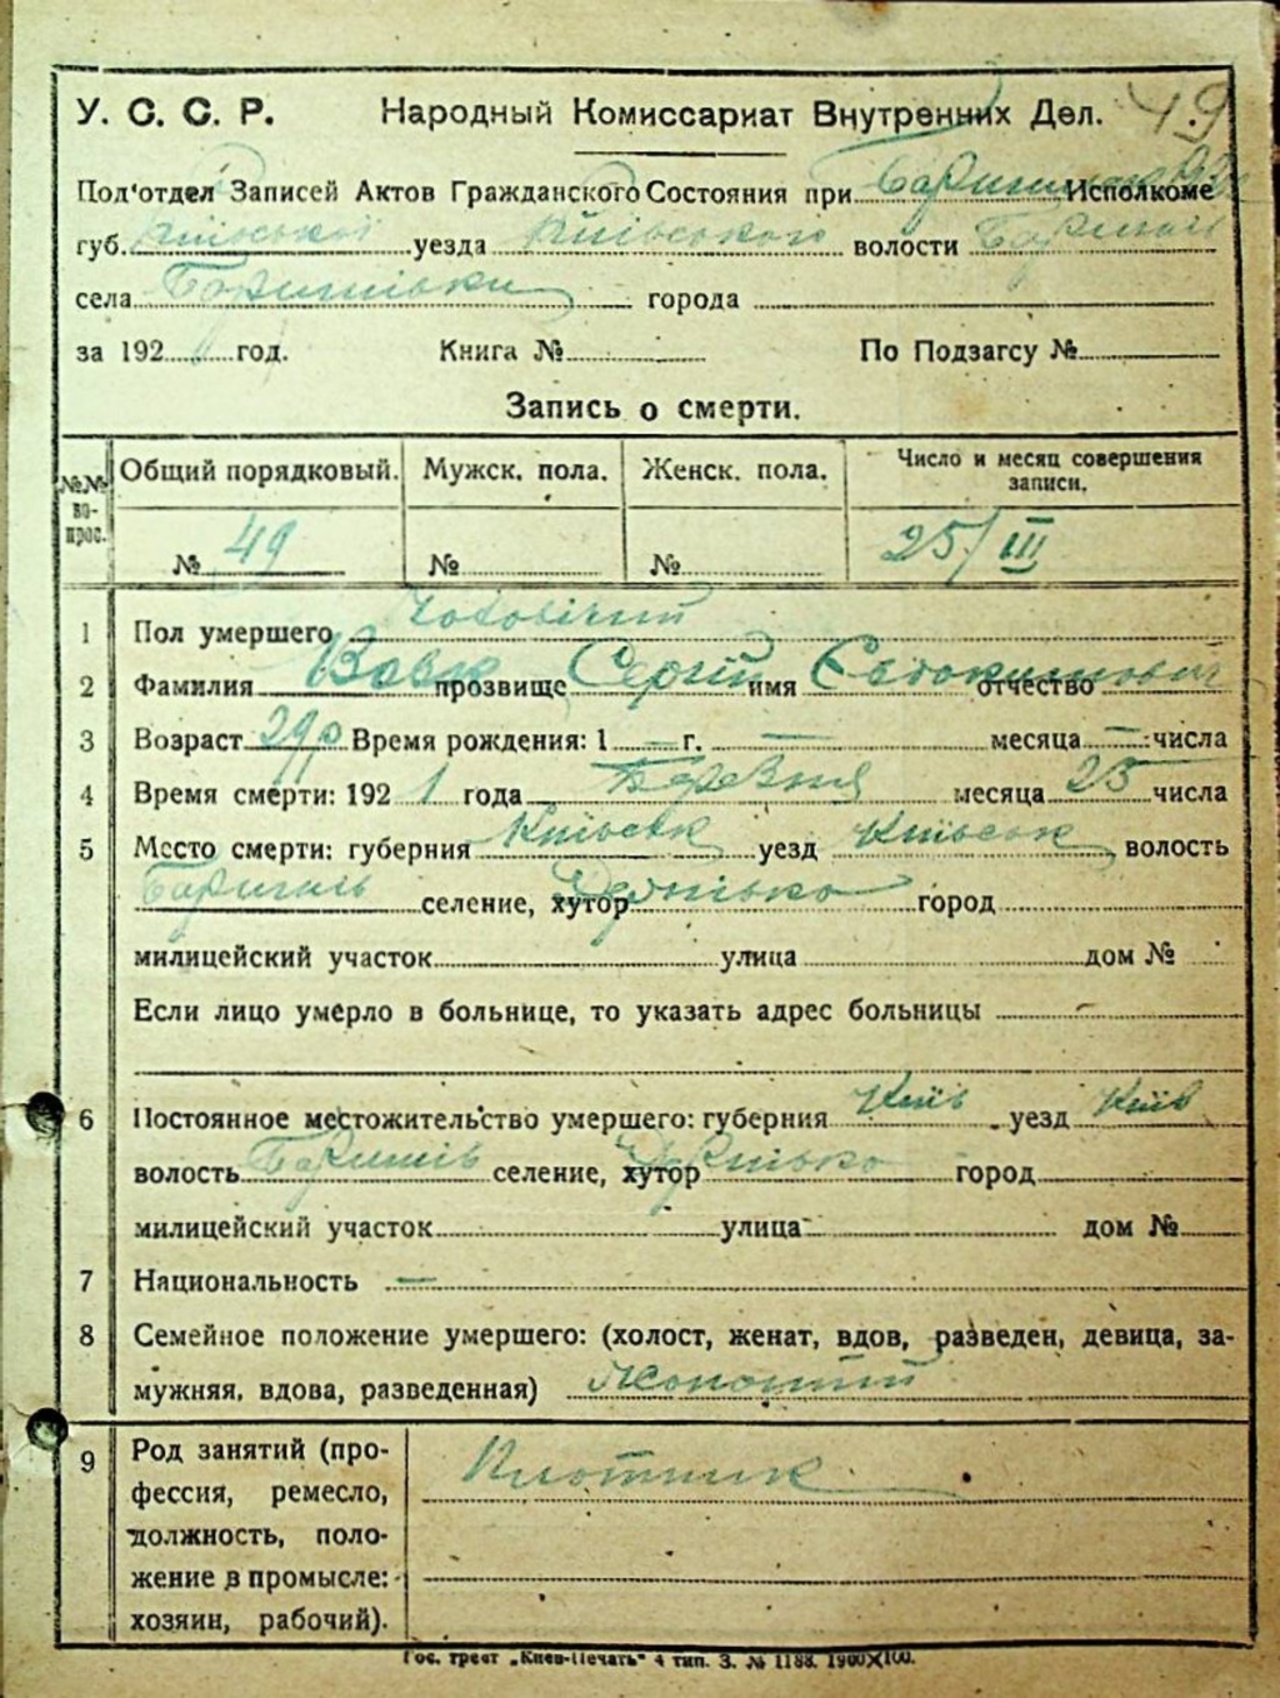 У. С. С. Р. Народный Комиссариат Внутренних Дел. 49
Под'отдел Записей Актов Гражданского Состояния при Исполкоме
губ. Київської уезда Київського волости Баришів
села Баришівки города
за 192 год. Книга № По Подзагсу №
Запись о смерти.
№№ во-прос. Общий порядковый. Мужск. пола. Женск. пола. Число и месяц совершения записи.
№ 49 № № 25/III
1 Пол умершего Чоловічий
2 Фамилия Вовк прозвище Сергій имя Євдокимович отчество
3 Возраст 29 р Время рождения: 1 — г. — месяца — числа
4 Время смерти: 192 1 года Березня месяца 25 числа
5 Место смерти: губерния Київськ уезд Київськ волость
Баришів селение, хутор город
милицейский участок улица дом №
Если лицо умерло в больнице, то указать адрес больницы —
6 Постоянное местожительство умершего: губерния Київ уезд Київ
волость Баришів селение, хутор город
милицейский участок улица дом №
7 Национальность —
8 Семейное положение умершего: (холост, женат, вдов, разведен, девица, за-
мужняя, вдова, разведенная) Жонатий
9 Род занятий (про- Плотник
фессия, ремесло,
должность, поло-
жение в промысле:
хозяин, рабочий).
Гос. трест „Киев-Печать" 4 тип. З. № 1188. 1900X100.